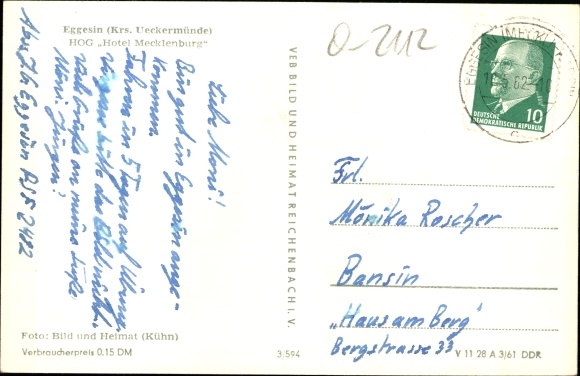 Eggesin (Krs. Ueckermünde)
HOG „Hotel Mecklenburg"
O-2112
Abs. J.B. Eggesin PSF 2482
Liebe Moni!
Bin gut in Eggesin ange-
kommen.
Fahre in 5 Tagen auf
bitte das Bild nicht.
viele Grüße an meine
Moni Jürgen!
Foto: Bild und Heimat (Kühn)
Verbraucherpreis 0,15 DM
VEB BILD UND HEIMAT REICHENBACH I. V.
3/594
EGGESIN (MECKL)
62
DEUTSCHE
DEMOKRATISCHE REPUBLIK
10
Frl.
Monika Roscher
Bansin
„Haus am Berg"
Bergstrasse 33
V 11 28 A 3/61 DDR